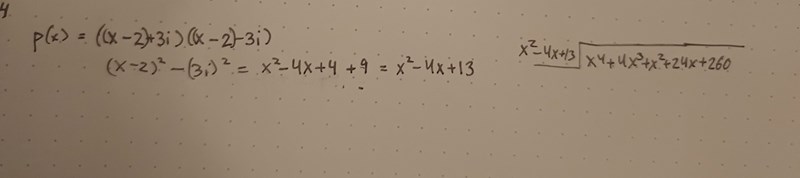 4.
p(x) = ((x-2)+3i)((x-2)-3i)
(x-2)² -(3i)² = x²-4x+4 +9 = x²-4x+13
x²-4x+13 | x⁴+4x³+x²+24x+260